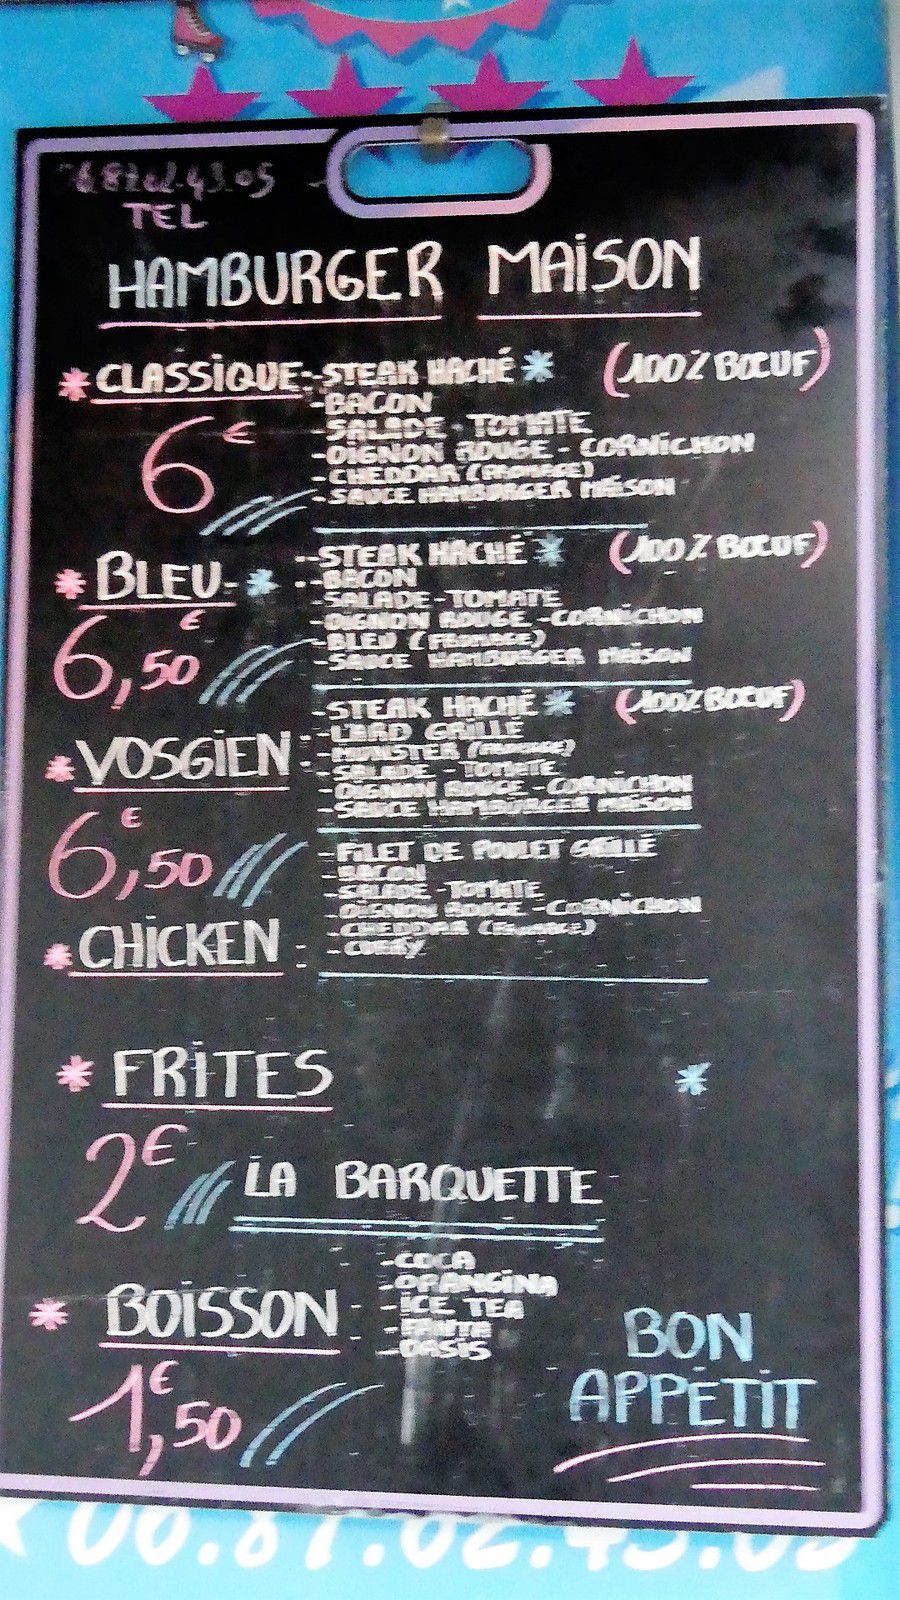 6.87.62.43.05
TEL
HAMBURGER MAISON
* CLASSIQUE: - STEAK HACHÉ * (100% BŒUF)
- BACON
6€
- SALADE - TOMATE
- OIGNON ROUGE - CORNICHON
- CHEDDAR (FROMAGE)
- SAUCE HAMBURGER MAISON
* BLEU - * - STEAK HACHÉ * (100% BŒUF)
- BACON
- SALADE - TOMATE
6,50€
- OIGNON ROUGE - CORNICHON
- BLEU (FROMAGE)
- SAUCE HAMBURGER MAISON
- STEAK HACHÉ * (100% BŒUF)
- LARD GRILLÉ
* VOSGIEN :
- MUNSTER (FROMAGE)
- SALADE - TOMATE
- OIGNON ROUGE - CORNICHON
- SAUCE HAMBURGER MAISON
6,50€
- FILET DE POULET GRILLÉ
- BACON
- SALADE - TOMATE
- OIGNON ROUGE - CORNICHON
- CHEDDAR (FROMAGE)
* CHICKEN : - CURRY
* FRITES *
2€ LA BARQUETTE
- COCA
- ORANGINA
* BOISSON : - ICE TEA
- FANTA
- OASIS
1,50€
BON
APPÉTIT
06.87.62.43.05